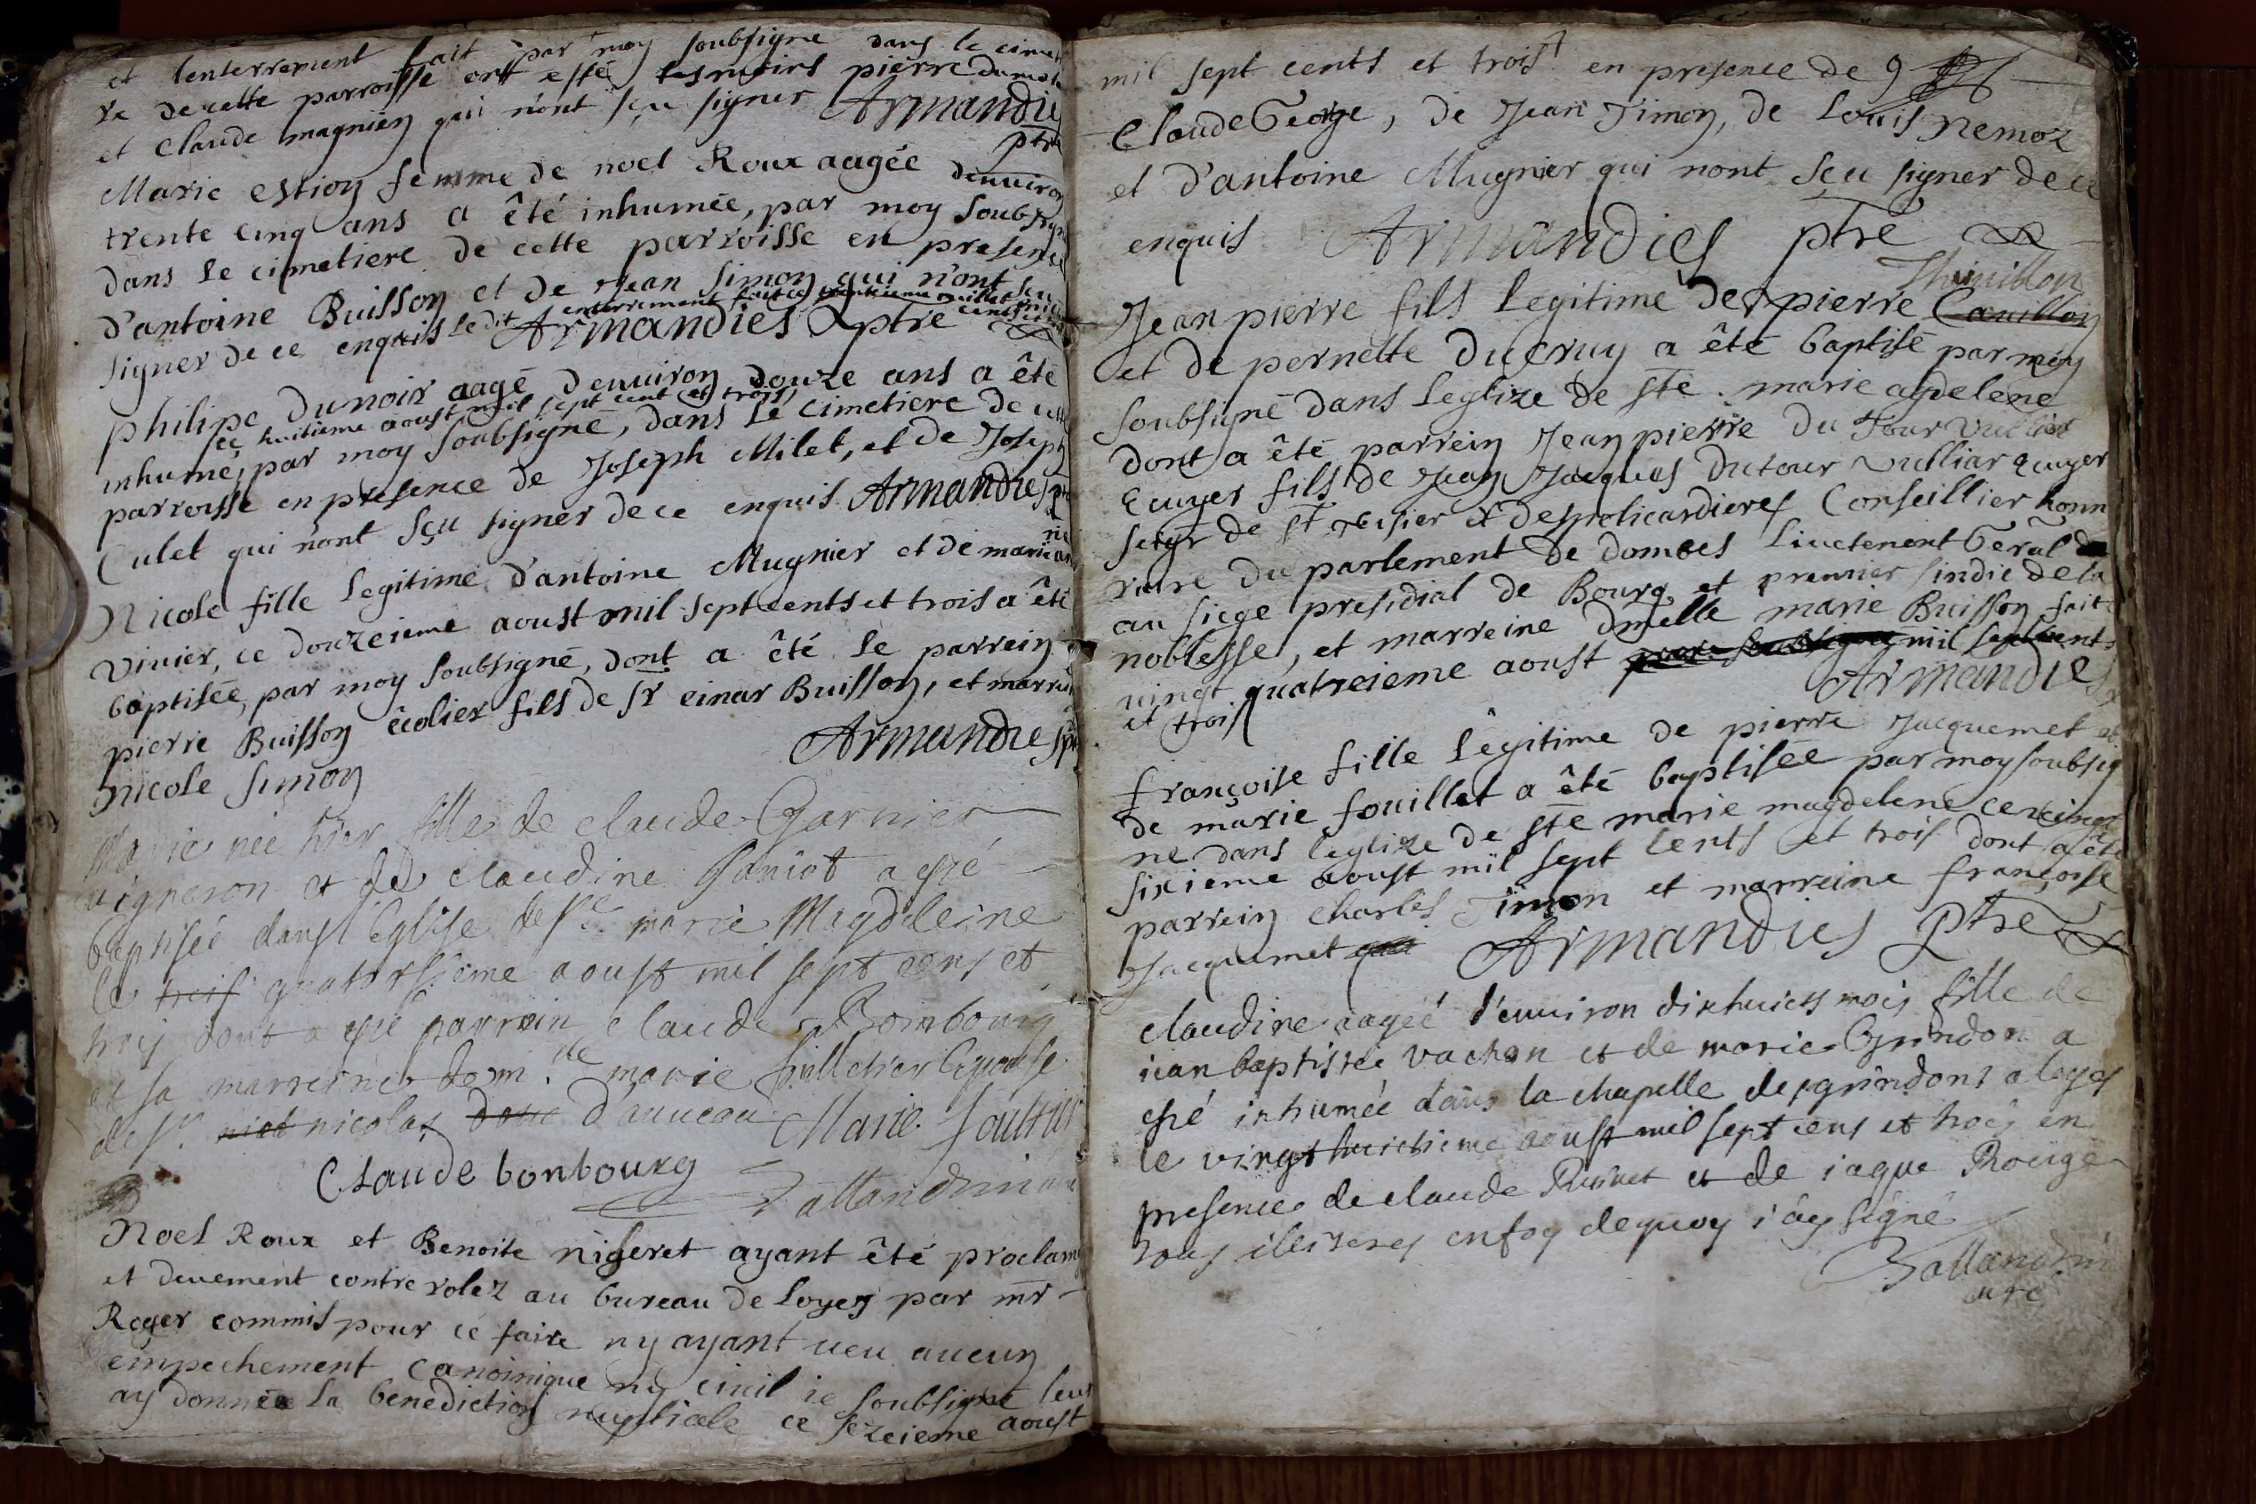 et lenterrement fait par moy soubsigne dans le cime
re de cette parroisse ont esté tesmoins pierre
et Claude magnien qui n'ont sçu signer Armandie
ptre
Marie estion femme de noel Roux aagée denuiron
trente cinq ans a êté inhumée, par moy soubsigne
dans le cimetiere de cette parroisse en presence
d'antoine Buisson et de Jean simon qui n'ont sçu
enterrement fait ce juillet mil
signer de ce enquis le dit Armandies ptre cents
philipe dunoir aagé denuiron douze ans a êté
ce huitieme aoust mil sept cent et trois
inhumé, par moy soubsigné, dans le cimetiere de cette
parroisse en presence de Joseph Milet, et de Joseph
Culet qui n'ont sçu signer de ce enquis Armandies
Nicole fille legitime d'antoine Mugnier et de marie
vivier, ce douzeieme aoust mil sept cents et trois a êté
baptisée, par moy soubsigné, dont a êté le parrein
pierre Buisson êcolier fils de sr einar Buisson, et marrei
nicole simon Armandies
Marie née hier fille de claude Garnier
uigneron et de claudine a esté
baptisée dans l'église de ste marie Magdeleine
le trois quatorsieme aoust mil sept cens et
trois dont a esté parrain claude Bombourg
et sa marreine dem.lle marie epouse
de sr nicolas d'anueau Marie
Claude bonbourg
Noel Roux et Benoite niseret ayant êté proclam
et deuement contrerolez au bureau de Loyes par mr
Roger commis pour ce faire ny ayant ueu aucun
empechement canoinique ny ciuil ie soubsigné leur
ay donnée la benediction nuptiale ce sezeieme aoust
mil sept cents et trois en presence de
Claude George, de Jean Timon, de Louis Nemoz
et d'antoine Mugnier qui nont sçu signer de ce
enquis Armandies ptre
Thiuillon
Jean pierre fils legitime de pierre Cauillon
et de pernette Ducruy a êté baptisé par moy
soubsigné dans leglize de ste marie
dont a êté parrein Jean pierre du Tour Vulliar
Ecuyer fils de Jean Jacques Dutour vulliar Ecuyer
seigr de st et Conseillier honn
raire du parlement de dombes Liuetenent Geral
au siege presidial de Bourg, et premier sindic de la
noblesse, et marreine dmelle marie Buisson fait
uingt quatreieme aoust mil sept cents
et trois Armandies
françoise fille legitime de pierre Jacquemet et
de marie fouillet a êté baptisée par moy soubsig
ne dans leglize de ste marie magdelene ce
sixieme aoust mil sept cents et trois dont a êté
parrein charles Timon et marreine françoise
Jacquemet Armandies ptre
claudine aagée d'enuiron dixhuict mois fille de
iean baptiste vachon et de marie Grindon a
esté inhumée dans la chapelle des grindons a loyes
le vingthuictieme aoust mil sept cens et trois en
presence de claude et de iaque Rouge
tous illiteres en foy dequoy i'ay signé
curé